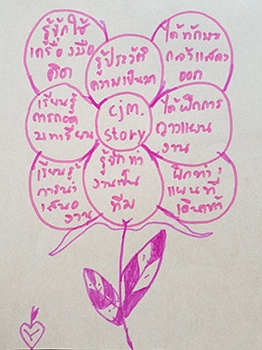 รู้จักใช้
เครื่องมือ
คิด
รู้ประวัติ
ความเป็นมา
ได้ทักษะ
กล้าแสดง
ออก
เรียนรู้
การถอด
บทเรียน
cjm.
Story
ได้ฝึกการ
วางแผน
งาน
เรียนรู้
การนำ
เสนอ
งาน
รู้จักทำ
งานเป็น
ทีม
ฝึกทำ
แผนที่
เดินเท้า